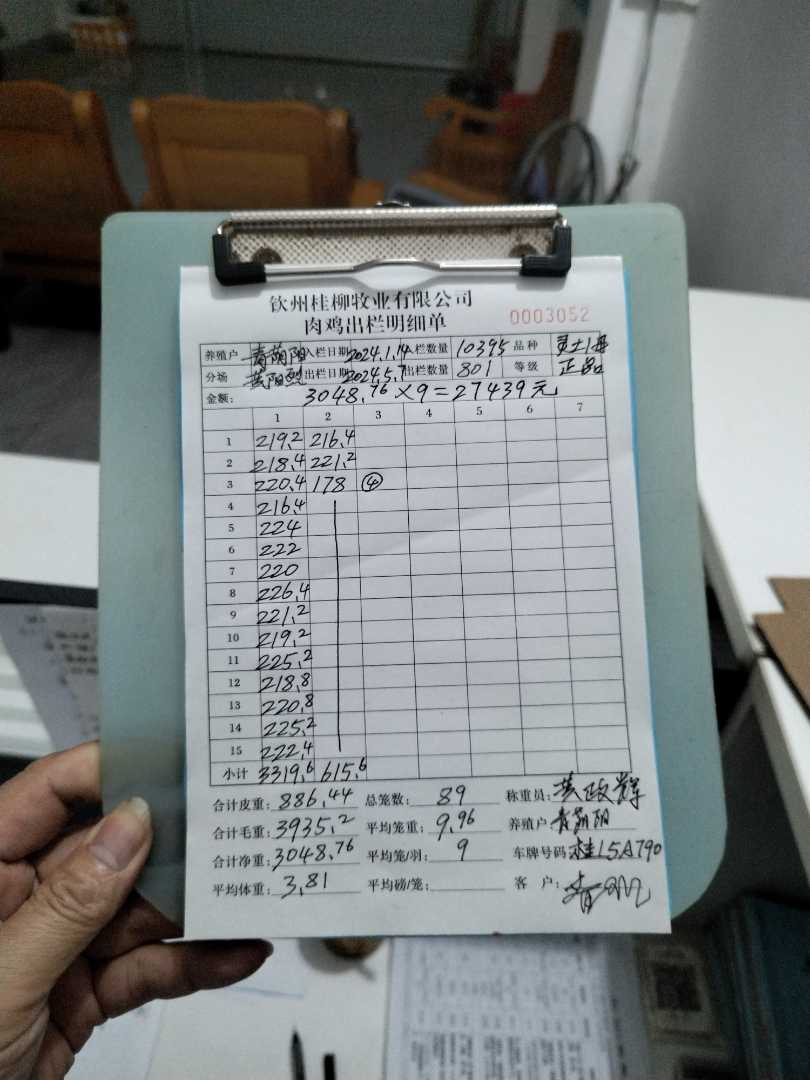 钦州桂柳牧业有限公司
肉鸡出栏明细单 0003052
养殖户 入栏日期 2024.1.14 入栏数量 10395 品种
分场 黄阳烈 出栏日期 2024.5.7 出栏数量 801 等级 正品
金额: 3048.76×9=27439元
1 2 3 4 5 6 7
1 219.2 216.4
2 218.4 221.2
3 220.4 178 ④
4 216.4
5 224
6 222
7 220
8 226.4
9 221.2
10 219.2
11 225.2
12 218.8
13 220.8
14 225.2
15 222.4
小计 3319.6 615.6
合计皮重: 886.44 总笼数: 89 称重员: 黄政辉
合计毛重: 3935.2 平均笼重: 9.96 养殖户
合计净重: 3048.76 平均笼/羽: 9 车牌号码: 桂L5A790
平均体重: 3.81 平均磅/笼: 客户: